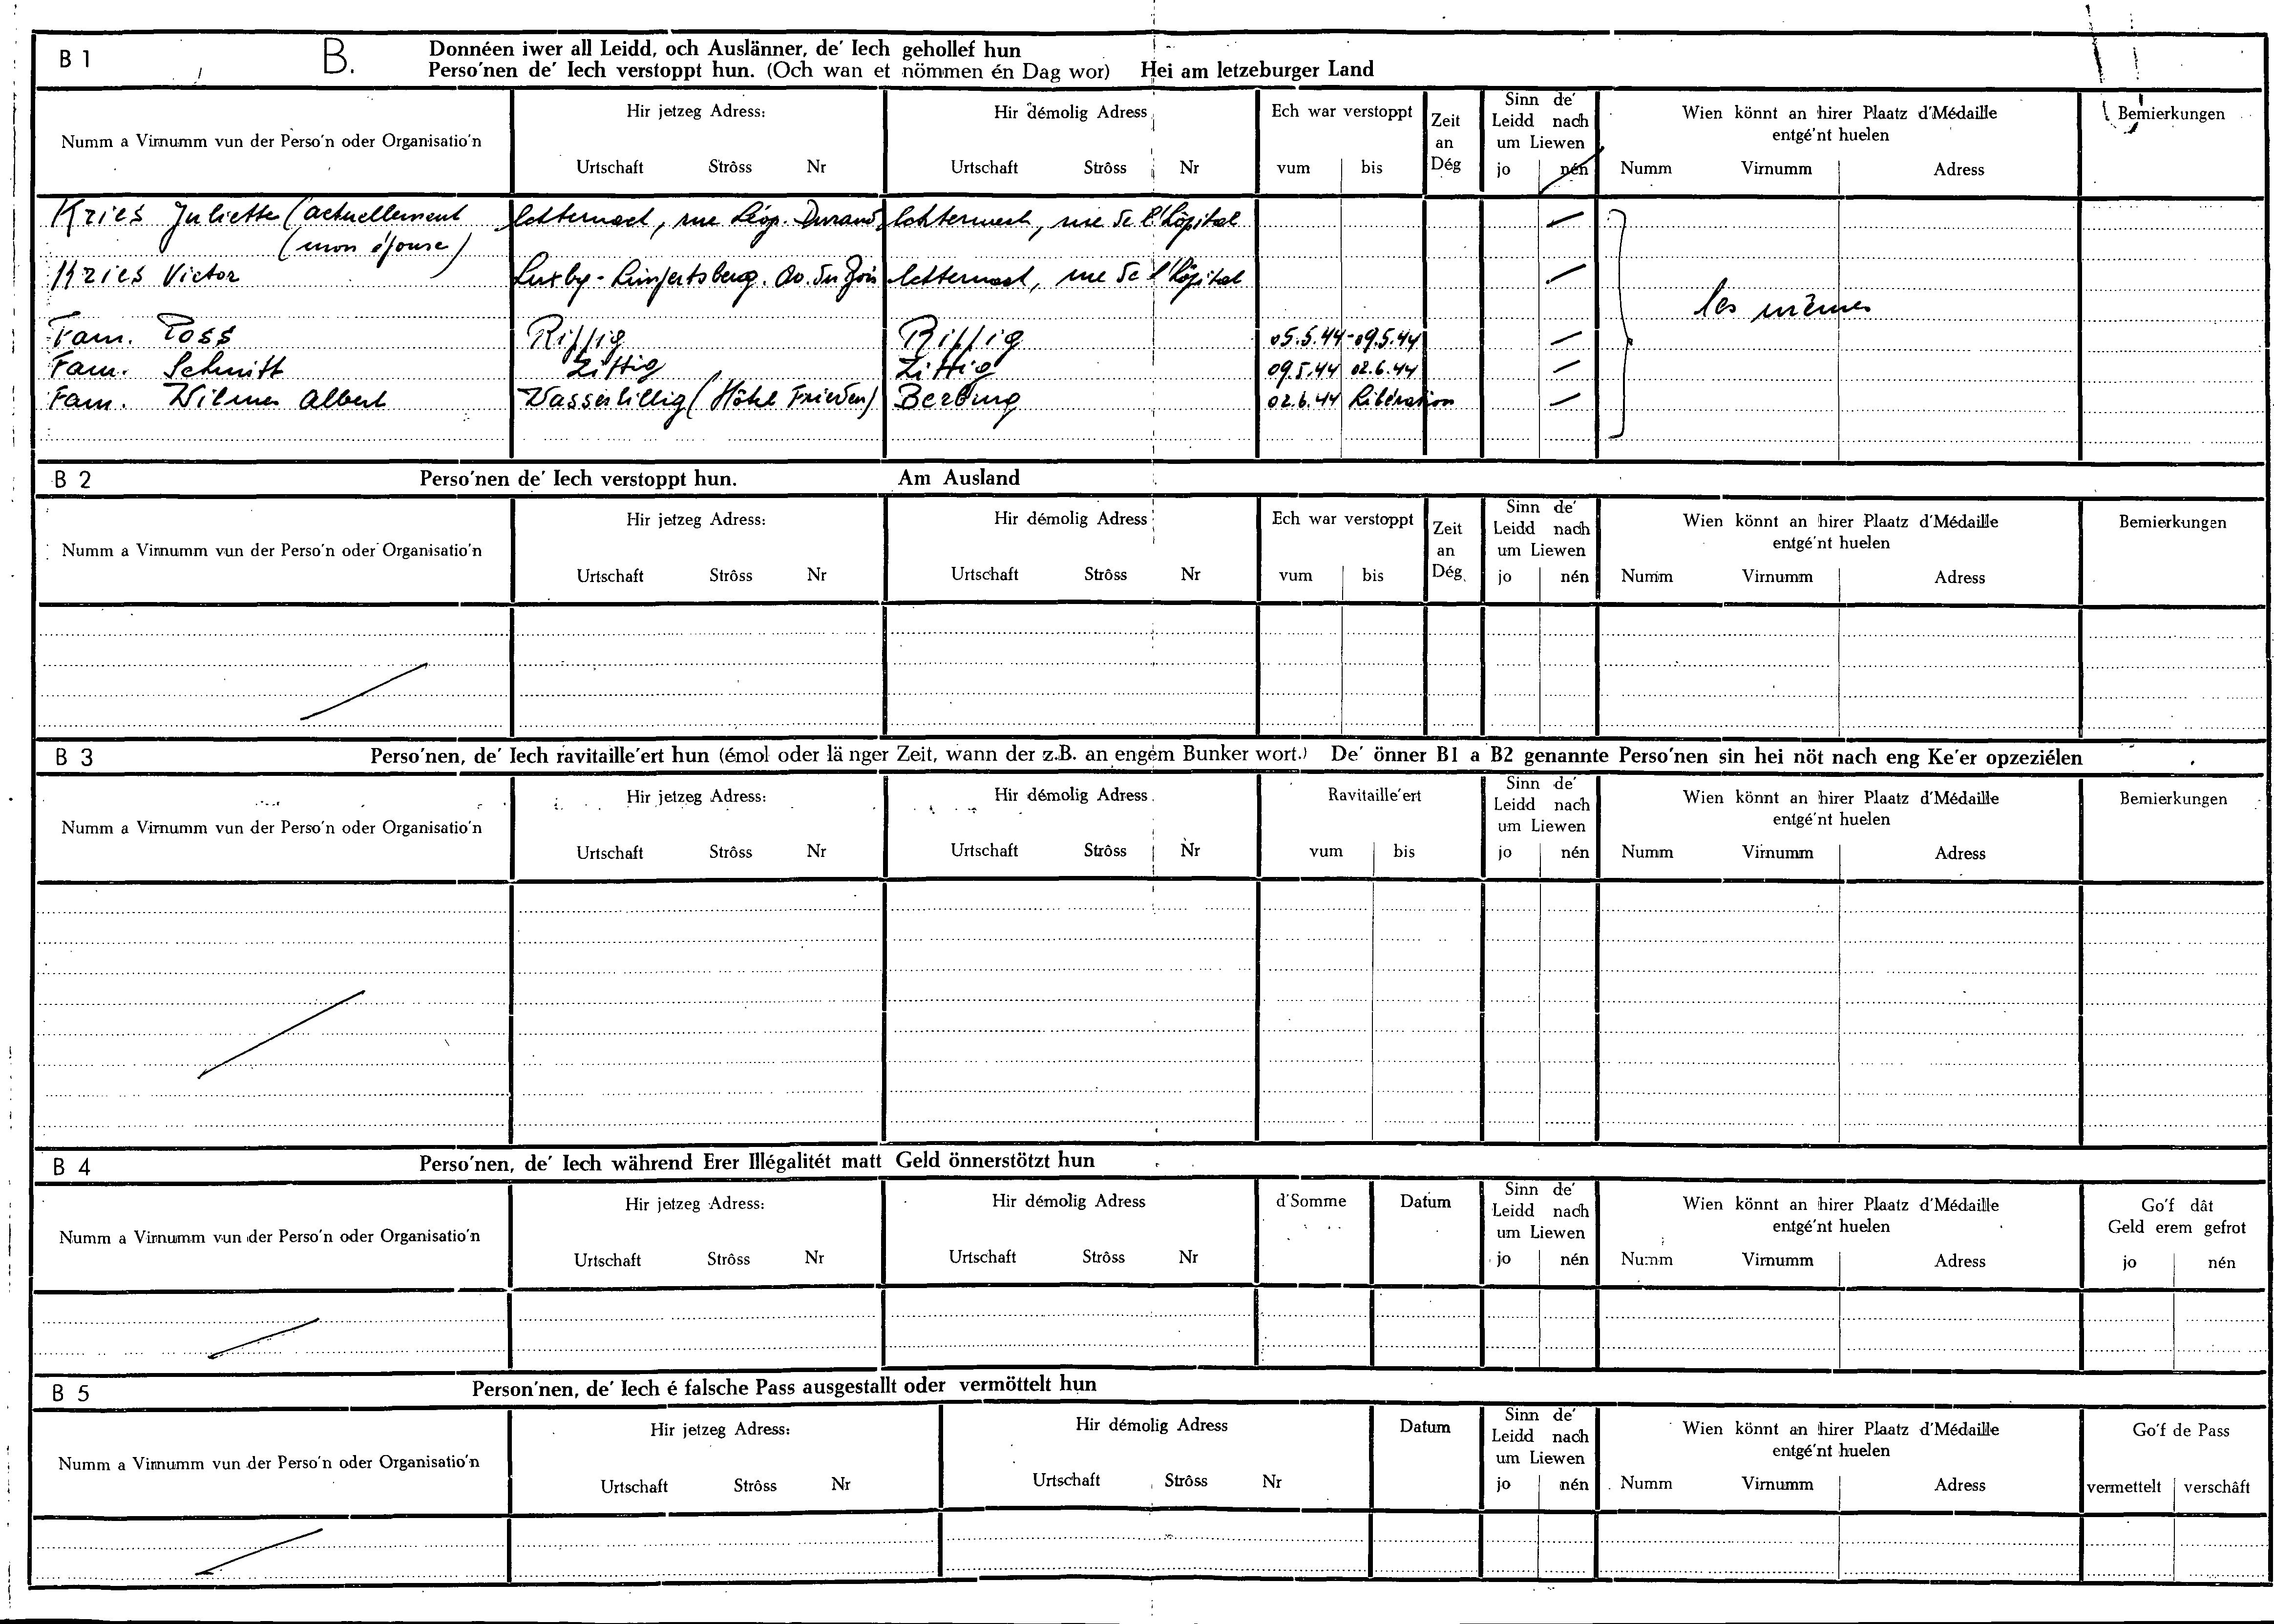 B 1 B. Donnéen iwer all Leidd, och Auslänner, de' Iech gehollef hun
Perso'nen de' Iech verstoppt hun. (Och wan et nömmen én Dag wor) Hei am letzeburger Land
Numm a Virnumm vun der Perso'n oder Organisatio'n
Hir jetzeg Adress:
Urtschaft Strôss Nr
Hir démolig Adress
Urtschaft Strôss Nr
Ech war verstoppt
vum bis
Zeit
an
Dég
Sinn de'
Leidd nach
um Liewen
jo nén
Wien könnt an hirer Plaatz d'Médaille
entgé'nt huelen
Numm Virnumm Adress
Bemierkungen
Kries Juliette (actuellement Echternach, rue Léop. Durand Echternach, rue de l'hôpital
(mon épouse)
Kries Victor Luxbg - Limpertsberg. Av. du Echternach, rue de l'hôpital
les mêmes
Fam. Poss Rippig Rippig 05.5.44 - 09.5.44
Fam. Schmitt Zittig Zittig 09.5.44 02.6.44
Fam. Wilmes Albert Wasserbillig (Hôtel Frieden) Berburg 02.6.44 Libération
B 2 Perso'nen de' Iech verstoppt hun. Am Ausland
Numm a Virnumm vun der Perso'n oder Organisatio'n
Hir jetzeg Adress:
Urtschaft Strôss Nr
Hir démolig Adress
Urtschaft Strôss Nr
Ech war verstoppt
vum bis
Zeit
an
Dég
Sinn de'
Leidd nach
um Liewen
jo nén
Wien könnt an hirer Plaatz d'Médaille
entgé'nt huelen
Numm Virnumm Adress
Bemierkungen
B 3 Perso'nen, de' Iech ravitaille'ert hun (émol oder länger Zeit, wann der z.B. an engem Bunker wort.) De' önner B1 a B2 genannte Perso'nen sin hei nöt nach eng Ke'er opzeziélen
Numm a Virnumm vun der Perso'n oder Organisatio'n
Hir jetzeg Adress:
Urtschaft Strôss Nr
Hir démolig Adress
Urtschaft Strôss Nr
Ravitaille'ert
vum bis
Sinn de'
Leidd nach
um Liewen
jo nén
Wien könnt an hirer Plaatz d'Médaille
entgé'nt huelen
Numm Virnumm Adress
Bemierkungen
B 4 Perso'nen, de' Iech während Erer Illégalitét matt Geld önnerstötzt hun
Numm a Virnumm vun der Perso'n oder Organisatio'n
Hir jetzeg Adress:
Urtschaft Strôss Nr
Hir démolig Adress
Urtschaft Strôss Nr
d'Somme
Datum
Sinn de'
Leidd nach
um Liewen
jo nén
Wien könnt an hirer Plaatz d'Médaille
entgé'nt huelen
Numm Virnumm Adress
Go'f dât
Geld erem gefrot
jo nén
B 5 Person'nen, de' Iech é falsche Pass ausgestallt oder vermöttelt hun
Numm a Virnumm vun der Perso'n oder Organisatio'n
Hir jetzeg Adress:
Urtschaft Strôss Nr
Hir démolig Adress
Urtschaft Strôss Nr
Datum
Sinn de'
Leidd nach
um Liewen
jo nén
Wien könnt an hirer Plaatz d'Médaille
entgé'nt huelen
Numm Virnumm Adress
Go'f de Pass
vermettelt verschâft